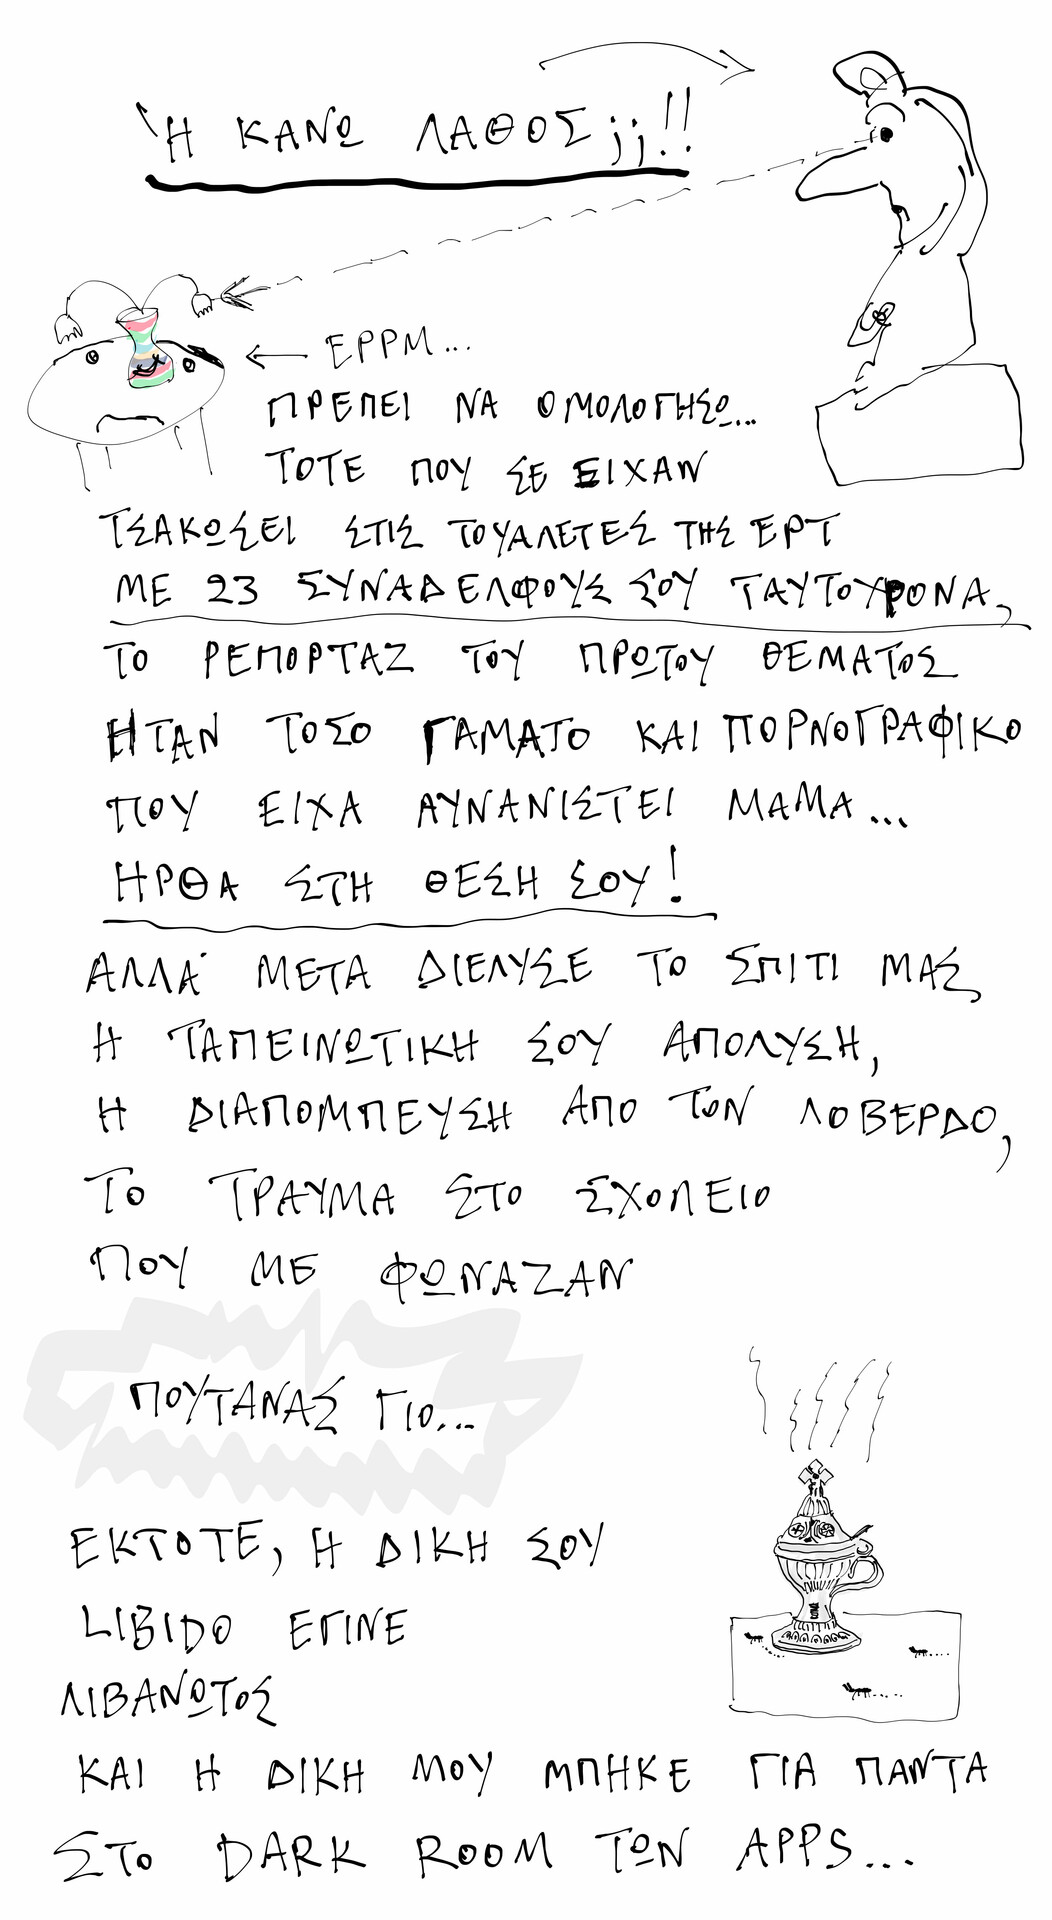 Ή ΚΑΝΩ ΛΑΘΟΣ ;;!!
ΕΡΡΜ...
ΠΡΕΠΕΙ ΝΑ ΟΜΟΛΟΓΗΣΩ...
ΤΟΤΕ ΠΟΥ ΣΕ ΕΙΧΑΝ
ΤΣΑΚΩΣΕΙ ΣΤΙΣ ΤΟΥΑΛΕΤΕΣ ΤΗΣ ΕΡΤ
ΜΕ 23 ΣΥΝΑΔΕΛΦΟΥΣ ΣΟΥ ΤΑΥΤΟΧΡΟΝΑ,
ΤΟ ΡΕΠΟΡΤΑΖ ΤΟΥ ΠΡΩΤΟΥ ΘΕΜΑΤΟΣ
ΗΤΑΝ ΤΟΣΟ ΓΑΜΑΤΟ ΚΑΙ ΠΟΡΝΟΓΡΑΦΙΚΟ
ΠΟΥ ΕΙΧΑ ΑΥΝΑΝΙΣΤΕΙ ΜΑΜΑ...
ΗΡΘΑ ΣΤΗ ΘΕΣΗ ΣΟΥ!
ΑΛΛΑ ΜΕΤΑ ΔΙΕΛΥΣΕ ΤΟ ΣΠΙΤΙ ΜΑΣ
Η ΤΑΠΕΙΝΩΤΙΚΗ ΣΟΥ ΑΠΟΛΥΣΗ,
Η ΔΙΑΠΟΜΠΕΥΣΗ ΑΠΟ ΤΟΝ ΛΟΒΕΡΔΟ,
ΤΟ ΤΡΑΥΜΑ ΣΤΟ ΣΧΟΛΕΙΟ
ΠΟΥ ΜΕ ΦΩΝΑΖΑΝ
ΠΟΥΤΑΝΑΣ ΓΙΟ...
ΕΚΤΟΤΕ, Η ΔΙΚΗ ΣΟΥ
LIBIDO ΕΓΙΝΕ
ΛΙΒΑΝΩΤΟΣ
ΚΑΙ Η ΔΙΚΗ ΜΟΥ ΜΠΗΚΕ ΓΙΑ ΠΑΝΤΑ
ΣΤΟ DARK ROOM ΤΩΝ APPS...